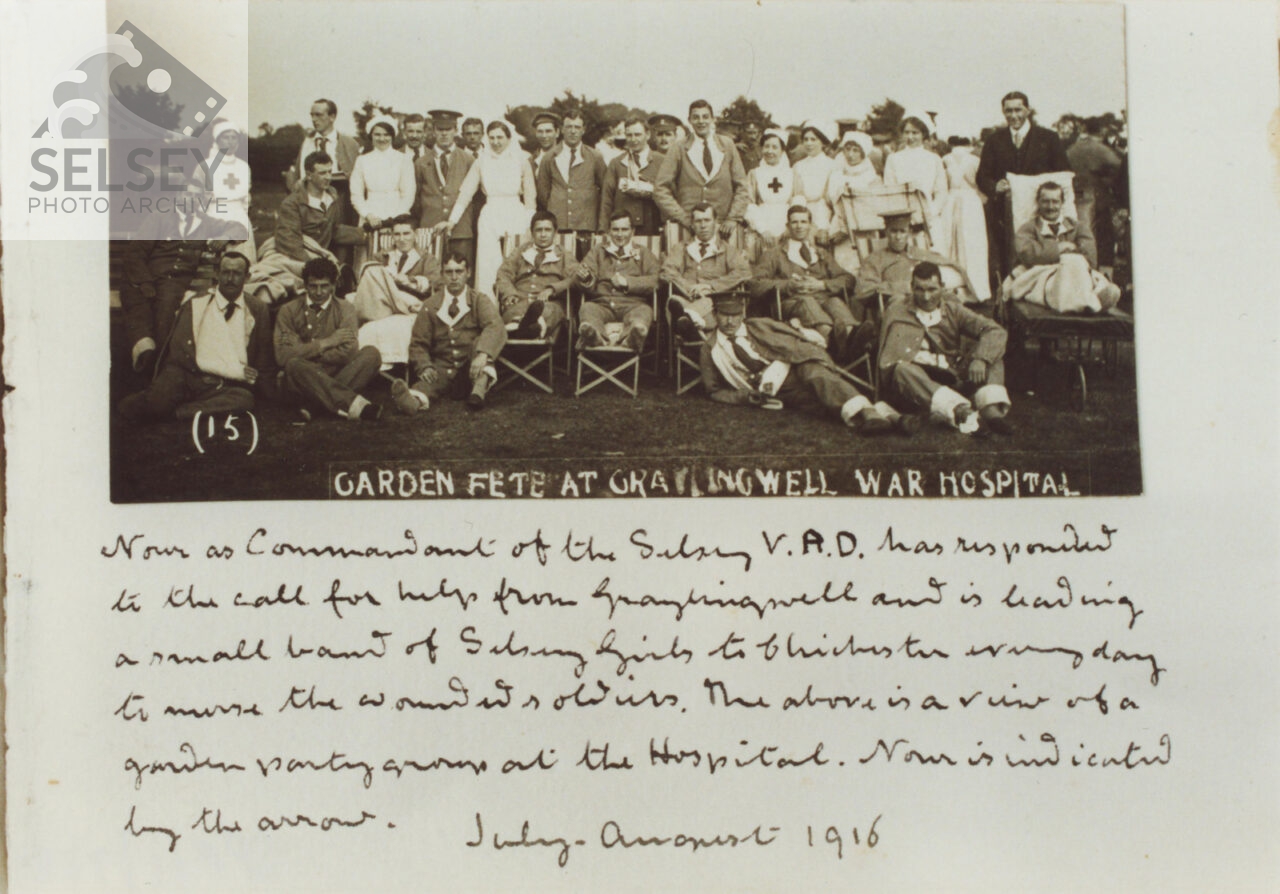 SELSEY
PHOTO ARCHIVE
(15)
GARDEN FETE AT GRAYLINGWELL WAR HOSPITAL
Nour as Commandant of the Selsey V.A.D. has responded
to the call for help from Graylingwell and is leading
a small band of Selsey Girls to Chichester every day
to nurse the wounded soldiers. The above is a view of a
garden party group at the Hospital. Nour is indicated
by the arrow.
July-August 1916